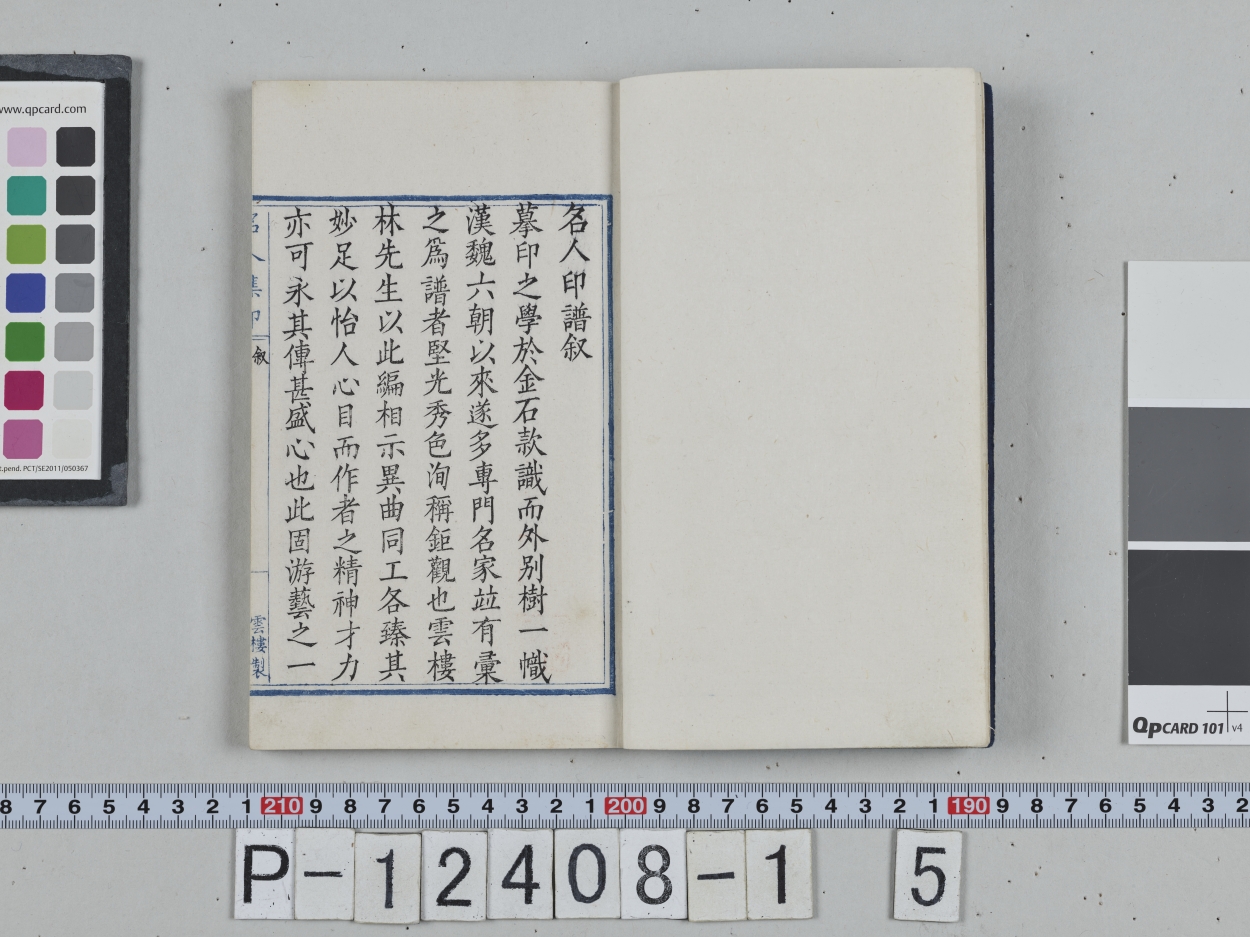 名人印譜叙
摹印之學於金石款識而外别樹一幟
漢魏六朝以來遂多専門名家竝有彙
之爲譜者堅光秀色洵稱鉅觀也雲樓
林先生以此編相示異曲同工各臻其
妙足以怡人心目而作者之精神才力
亦可永其傳甚盛心也此固游藝之一
名人集印
叙
雲樓製
www.qpcard.com
t.pend. PCT/SE2011/050367
QPCARD 101 v4
8 7 6 5 4 3 2 1 210 9 8 7 6 5 4 3 2 1 200 9 8 7 6 5 4 3 2 1 190 9 8 7 6 5 4 3 2
P-12408-1 5